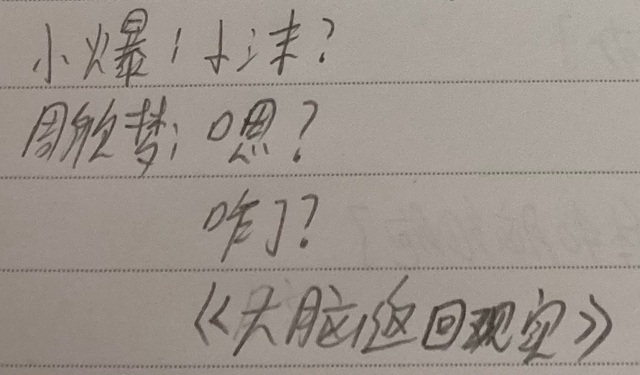 小爆：小沫？
周欣梦：嗯？
咋了？
《大脑返回现实》